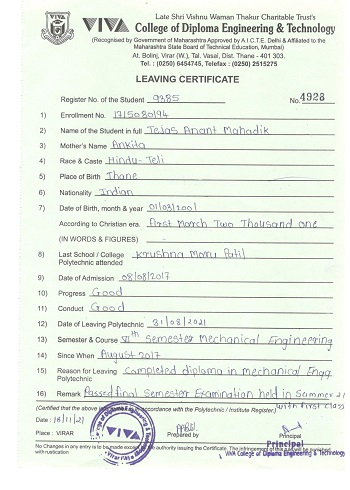 Late Shri Vishnu Waman Thakur Charitable Trust's
VIVA College of Diploma Engineering & Technology
(Recognised by Government of Maharashtra Approved by A.I.C.T.E. Delhi & Affiliated to the
Maharashtra State Board of Technical Education, Mumbai)
At. Bolinj, Virar (W.), Tal. Vasai, Dist. Thane - 401 303.
Tel. : (0250) 6454745, Telefax : (0250) 2515275
LEAVING CERTIFICATE
Register No. of the Student 9385 No. 4928
1) Enrollment No. 1715080194
2) Name of the Student in full Tejas Anant Mahadik
3) Mother's Name Ankita
4) Race & Caste Hindu-Teli
5) Place of Birth Thane
6) Nationality Indian
7) Date of Birth, month & year 01/03/2001
According to Christian era. first March Two Thousand one
(IN WORDS & FIGURES)
8) Last School / College Krushna Moru Patil
Polytechnic attended
9) Date of Admission 08/08/2017
10) Progress Good
11) Conduct Good
12) Date of Leaving Polytechnic 31/08/2021
13) Semester & Course VIth Semester Mechanical Engineering
14) Since When August 2017
15) Reason for Leaving Completed diploma in mechanical Engg
Polytechnic
16) Remark Passed final Semester Examination held in Summer 21
with first class
(Certified that the above in accordance with the Polytechnic / Institute Register.)
Date : 16/11/21
Place : VIRAR Prepared by Principal
Principal
VIVA College of Diploma Engineering & Technology
No Changes in any entry is to be made except by the authority issuing the Certificate. The infringement of this will be punished
with rustication